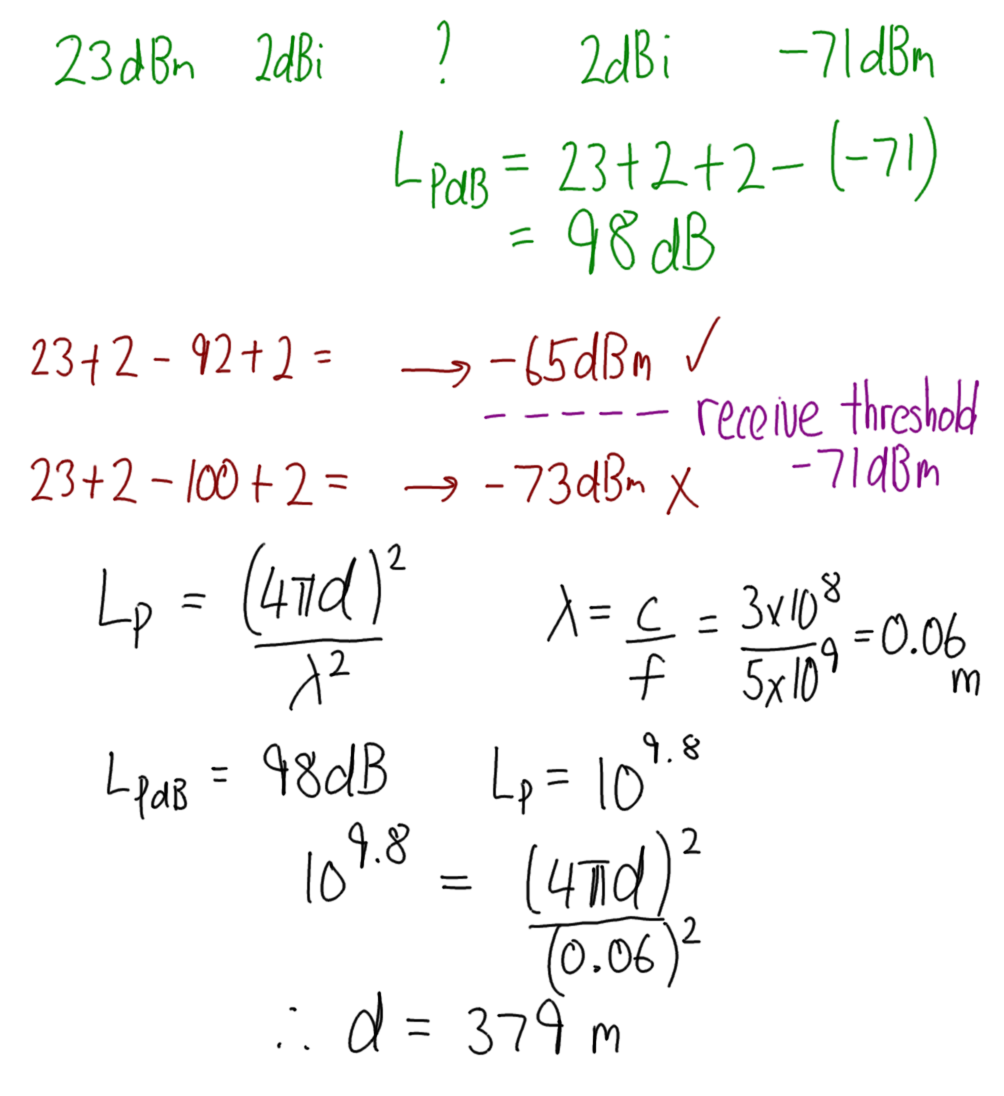 23dBm 2dBi ? 2dBi -71dBm
LPdB = 23+2+2-(-71)
= 98dB
23+2-92+2= → -65dBm ✓
----- receive threshold
-71dBm
23+2-100+2= → -73dBm X
Lp = (4πd)²/λ² λ = c/f = 3x10⁸/5x10⁹ = 0.06 m
LPdB = 98dB Lp = 10^9.8
10^9.8 = (4πd)²/(0.06)²
∴ d = 379 m